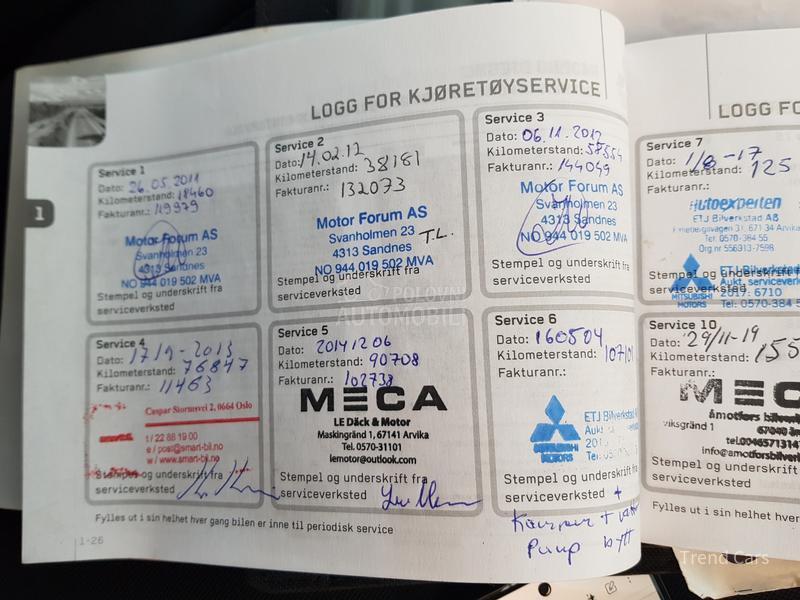 LOGG FOR KJØRETØYSERVICE
1
Service 1
Dato: 26.05.2011
Kilometerstand: 18460
Fakturanr.: 119979
Motor Forum AS
Svanholmen 23
4313 Sandnes
NO 944 019 502 MVA
Stempel og underskrift fra
serviceverksted
Service 2
Dato: 14.02.12
Kilometerstand: 38181
Fakturanr.: 132073
Motor Forum AS
Svanholmen 23
4313 Sandnes
T.L.
NO 944 019 502 MVA
Stempel og underskrift fra
serviceverksted
Service 3
Dato: 06.11.2012
Kilometerstand: 58554
Fakturanr.: 144049
Motor Forum AS
Svanholmen 23
4313 Sandnes
NO 944 019 502 MVA
Stempel og underskrift fra
serviceverksted
Service 4
Dato: 17/9-2013
Kilometerstand: 76847
Fakturanr.: 11463
Caspar Stormsvei 2, 0664 Oslo
t / 22 88 19 00
e / post@smart-bil.no
w / www.smart-bil.no
Stempel og underskrift fra
serviceverksted
Service 5
Dato: 20141206
Kilometerstand: 90708
Fakturanr.: 102738
MECA
LE Däck & Motor
Maskingränd 1, 67141 Arvika
Tel. 0570-31101
lemotor@outlook.com
Stempel og underskrift fra
serviceverksted
Service 6
Dato: 160504
Kilometerstand: 107101
Fakturanr.:
MITSUBISHI
MOTORS
ETJ Bilverkstad
Stempel og underskrift fra
serviceverksted +
Pump bytt
Fylles ut i sin helhet hver gang bilen er inne til periodisk service
1-26
LOGG FO
Service 7
Dato: 1/8-17
Kilometerstand: 125
Fakturanr.:
Autoexperten
ETJ Bilverkstad AB
671 34 Arvika
Tel. 0570-384 55
Org nr 556313-7598
MITSUBISHI
MOTORS
ETJ Bilverkstad
Aukt. serviceverkstad
2017: 6710
Tel: 0570-384 5
Stempel og underskrift f
serviceverksted
Service 10
Dato: 29/11-19
Kilometerstand: 155
Fakturanr.:
MEC
åmotfors bilverk
viksgränd 1
tel.004657131
info@amotforsbilver
Stempel og underskrift
serviceverksted
Fylles ut i sin helhet hver
POLOVNI
AUTOMOBILI
Trend Cars